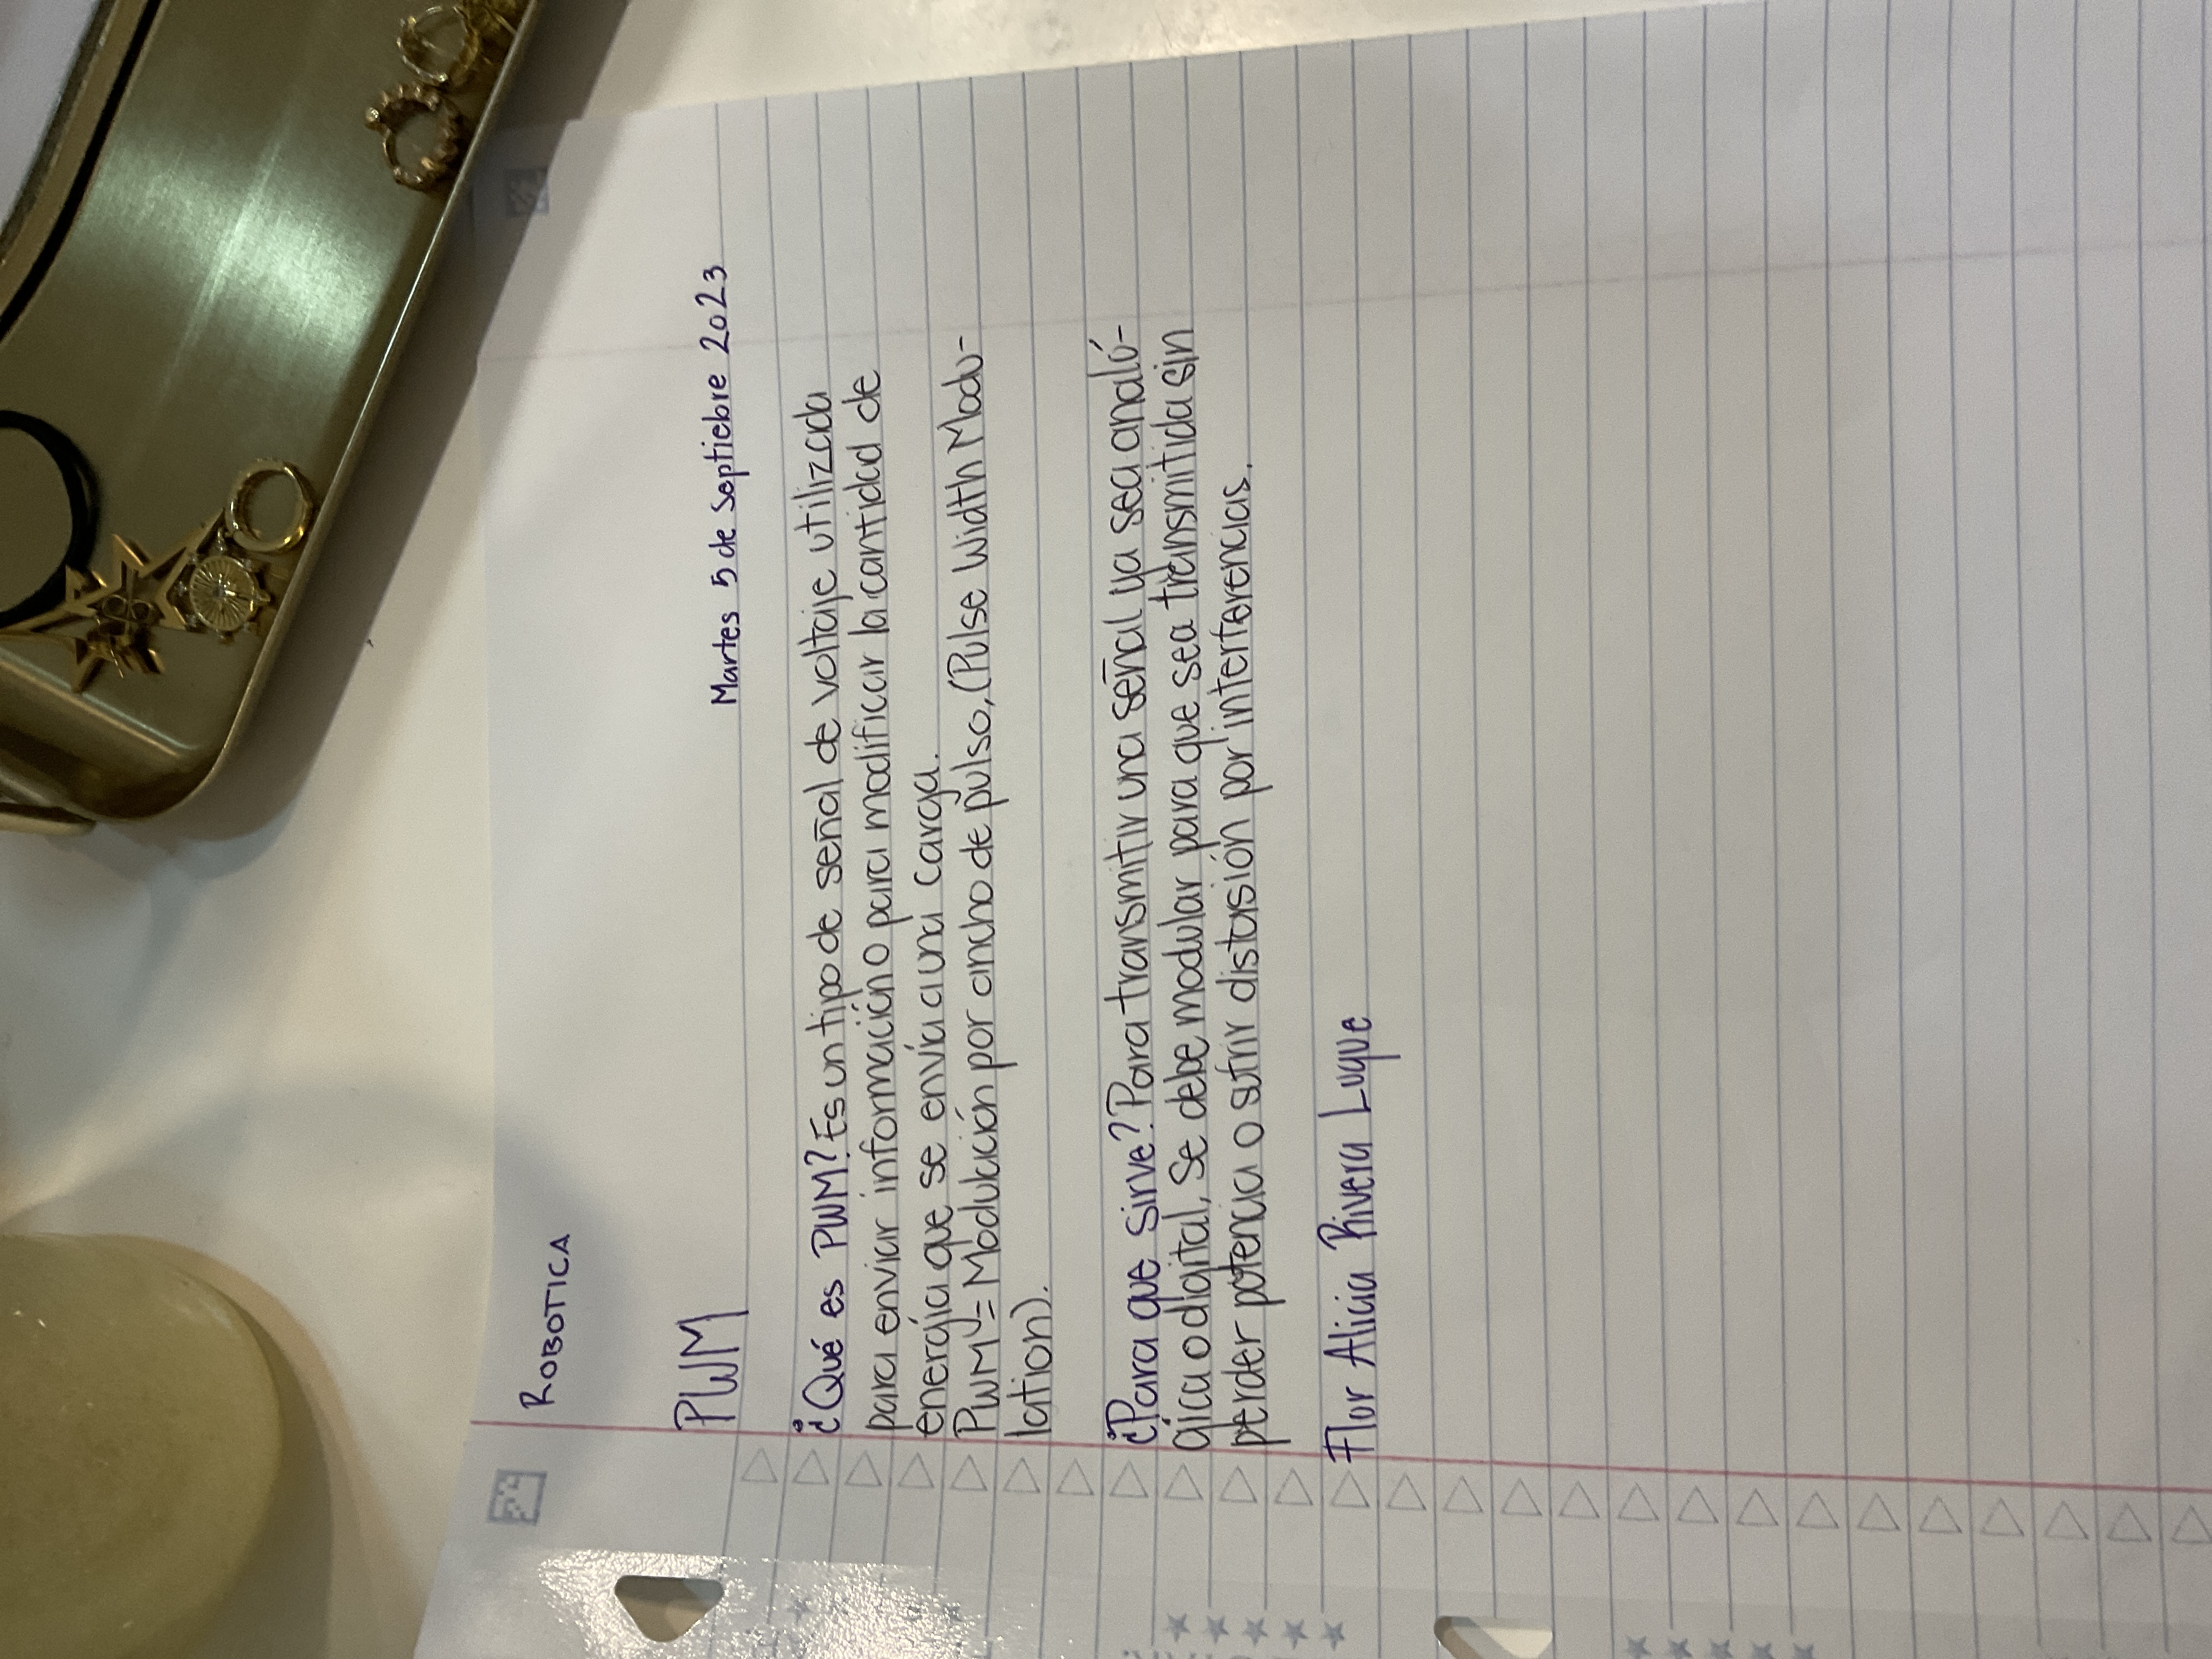 ROBOTICA
PWM
Martes 5 de Septiebre 2023
¿Qué es PWM? Es un tipo de señal de voltaje utilizada
para enviar información o para modificar la cantidad de
energía que se envía a una carga.
PWM = Modulación por ancho de pulso, (Pulse Width Modu-
lation).
¿Para que sirve? Para transmitir una señal ya sea análo-
gica o digital, se debe modular para que sea transmitida sin
perder potencia o sufrir distorsión por interferencias.
Flor Alicia Rivera Luque